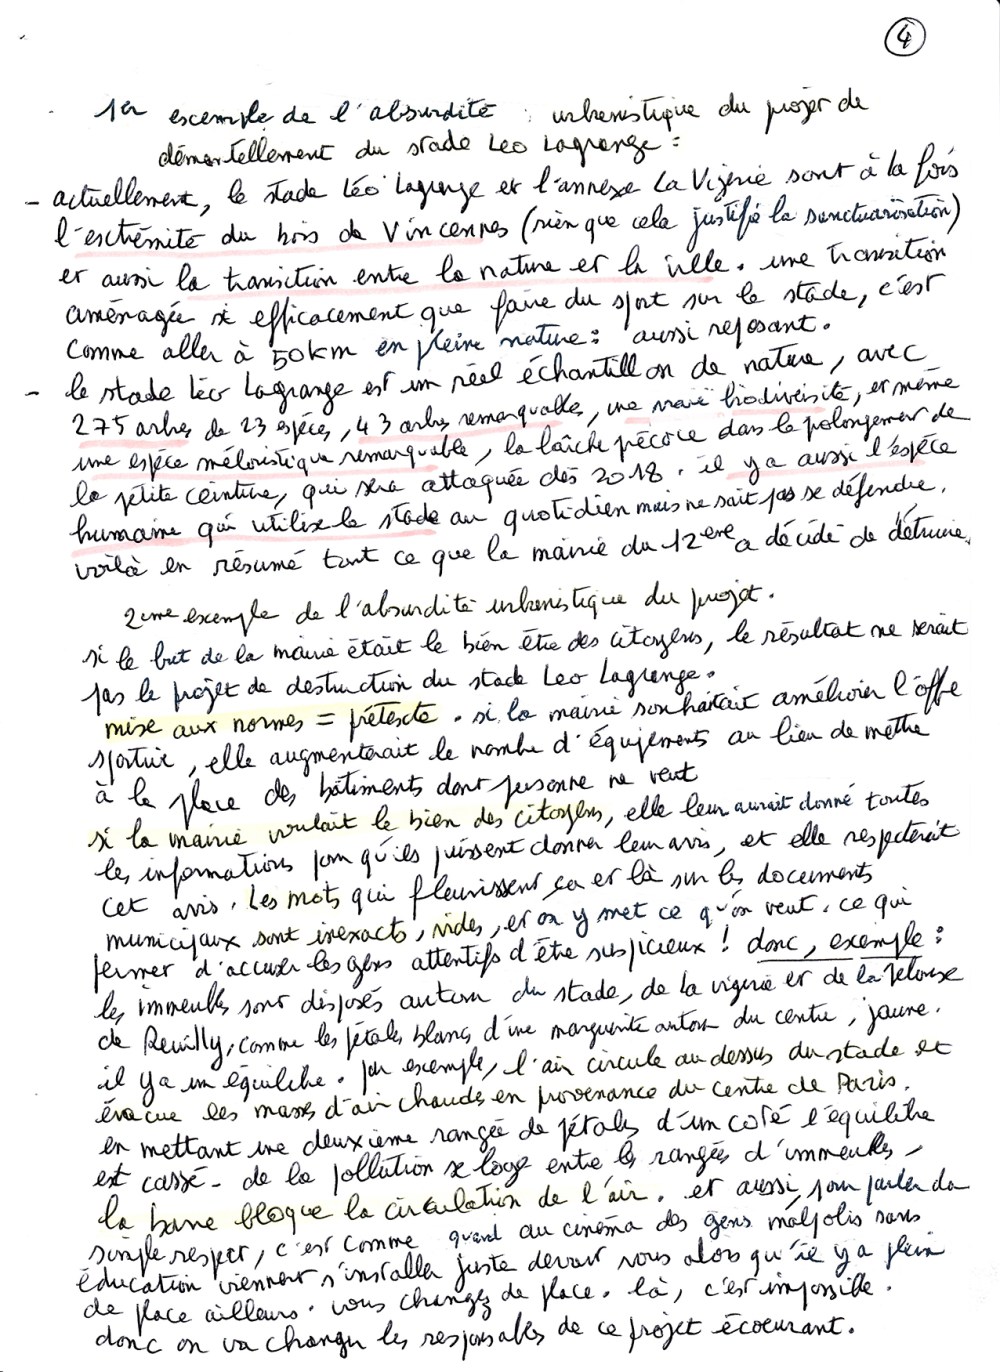 4
1er exemple de l'absurdité urbanistique du projet de
démantellement du stade Leo Lagrange :
- actuellement, le stade Léo Lagrange et l'annexe La Vigerie sont à la fois
l'extrémité du bois de Vincennes (rien que cela justifie la sanctuarisation)
et aussi la transition entre la nature et la ville. une transition
aménagée si efficacement que faire du sport sur le stade, c'est
comme aller à 50km en pleine nature : aussi reposant.
- le stade Léo Lagrange est un réel échantillon de nature, avec
275 arbres de 23 espèces, 43 arbres remarquables, une vraie biodiversité, et même
une espèce remarquable, la laîche précoce dans le prolongement de
la petite ceinture, qui sera attaquée dès 2018. il y a aussi l'espèce
humaine qui utilise le stade au quotidien mais ne sait pas se défendre.
voilà en résumé tout ce que la mairie du 12ème a décidé de détruire.
2eme exemple de l'absurdité urbanistique du projet.
si le but de la mairie était le bien être des citoyens, le résultat ne serait
pas le projet de destruction du stade Leo Lagrange.
mise aux normes = prétexte. si la mairie souhaitait améliorer l'offre
sportive, elle augmenterait le nombre d'équipements au lieu de mettre
à la place des bâtiments dont personne ne veut
si la mairie voulait le bien des citoyens, elle leur aurait donné toutes
les informations pour qu'ils puissent donner leur avis, et elle respecterait
cet avis. Les mots qui fleurissent ça et là sur les documents
municipaux sont inexacts, vides, et on y met ce qu'on veut. ce qui
permet d'accuser les gens attentifs d'être suspicieux ! donc, exemple :
les immeubles sont disposés autour du stade, de la vigerie et de la pelouse
de Reuilly, comme les pétales blancs d'une marguerite autour du centre, jaune.
il y a un équilibre. par exemple, l'air circule au dessus du stade et
évacue les masses d'air chaudes en provenance du centre de Paris.
en mettant une deuxième rangée de pétales d'un coté l'équilibre
est cassé - de la pollution se loge entre les rangées d'immeubles,
la barre bloque la circulation de l'air. et aussi, pour parler du
simple respect, c'est comme quand au cinéma des gens malpolis sans
éducation viennent s'installer juste devant vous alors qu'il y a plein
de place ailleurs. vous changez de place. là, c'est impossible.
donc on va changer les responsables de ce projet écoeurant.